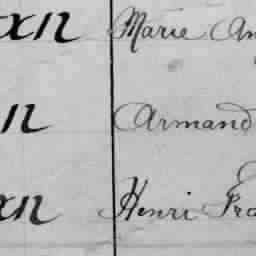 xn Marie An
n Armand
xn Henri Fra